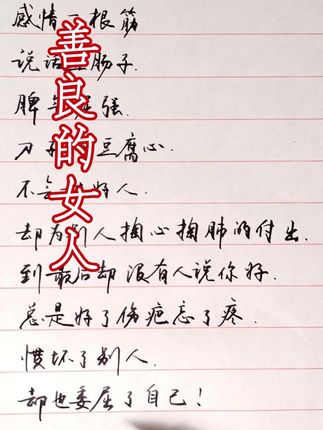 善良的女人
感情一根筋
说话 肠子.
脾 强.
刀 豆腐心.
不 好人.
却为别人掏心掏肺的付出.
到最后却没有人说你好.
总是好了伤疤忘了疼.
惯坏了别人.
却也委屈了自己！